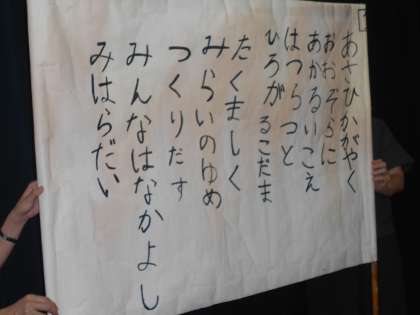 あさひかがやく
おおぞらに
あかるいこえ
はつらつと
ひろがるこだま
たくましく
みらいのゆめ
つくりだす
みんなはなかよし
みはらだい